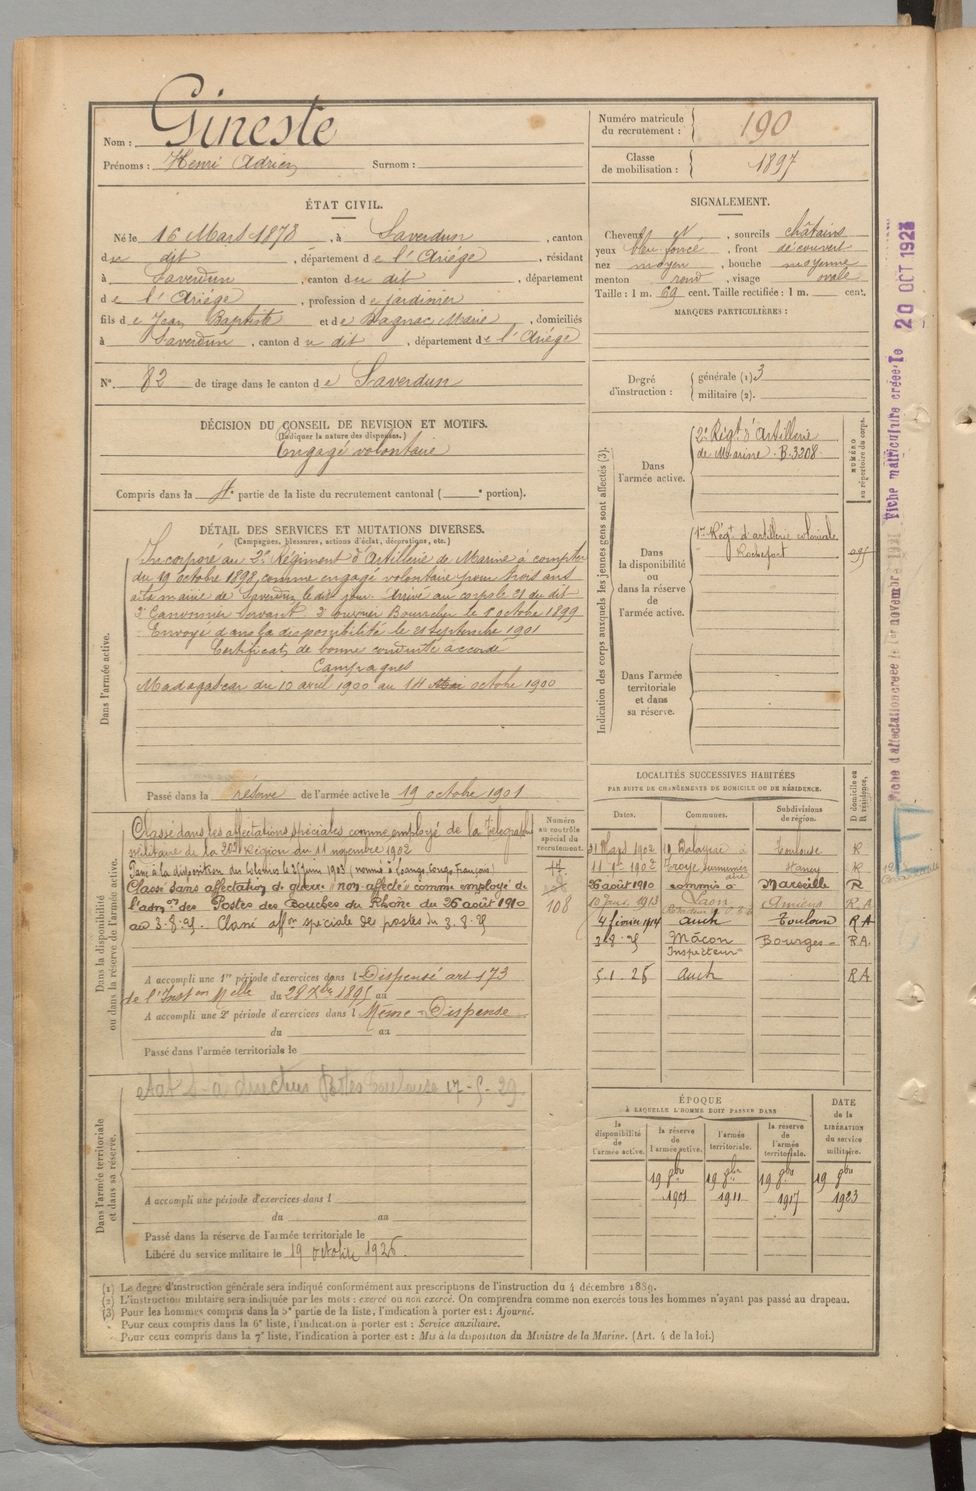 Nom : Gineste
Prénoms : Henri Adrien Surnom :
Numéro matricule du recrutement : 190
Classe de mobilisation : 1897
ÉTAT CIVIL.
Né le 16 Mars 1878, à Saverdun, canton
du dit, département de l'Ariége, résidant
à Saverdun, canton du dit, département
de l'Ariége, profession de jardinier
fils de Jean Baptiste et de Bagnac Marie, domiciliés
à Saverdun, canton du dit, département de l'Ariége
N° 82 de tirage dans le canton de Saverdun
DÉCISION DU CONSEIL DE REVISION ET MOTIFS.
(Indiquer la nature des dispenses.)
Engagé volontaire
Compris dans la 4e partie de la liste du recrutement cantonal ( e portion).
SIGNALEMENT.
Cheveux et, sourcils châtains
yeux bleu foncé, front découvert
nez moyen, bouche moyenne
menton rond, visage ovale
Taille : 1 m. 69 cent. Taille rectifiée : 1 m. cent.
MARQUES PARTICULIÈRES :
Degré d'instruction : générale (1) 3
militaire (2).
DÉTAIL DES SERVICES ET MUTATIONS DIVERSES.
(Campagnes, blessures, actions d'éclat, décorations, etc.)
Dans l'armée active.
Incorporé au 2e Régiment d'Artillerie de Marine à compter
du 19 octobre 1898, comme engagé volontaire pour trois ans
à la mairie de Saverdun le dit jour. Arrivé au corps le 21 du dit
2e Canonnier Servant. 2e ouvrier Bourrelier le 1er octobre 1899
Envoyé dans la disponibilité le 21 septembre 1901
Certificat de bonne conduite accordé
Campagnes
Madagascar du 10 avril 1900 au 14 octobre 1900
Passé dans la réserve de l'armée active le 19 octobre 1901
Indication des corps auxquels les jeunes gens sont affectés (3).
NUMÉRO au répertoire du corps.
Dans l'armée active.
2e Régt d'Artillerie
de Marine. B.3208
Dans la disponibilité ou dans la réserve de l'armée active.
1er Régt d'artillerie coloniale
Rochefort
Dans l'armée territoriale et dans sa réserve.
Dans la disponibilité ou dans la réserve de l'armée active.
Numéro au contrôle spécial du recrutement.
108
Classé dans les affectations spéciales comme employé de la télégraphie
militaire de la 20e Région du 11 novembre 1902
Passé à la disposition des Colonies le 25 juin 1903
Classé sans affectation de guerre "non affecté" comme employé de
l'admon des Postes des Bouches du Rhône du 26 août 1910
au 3.8.25. Classé affon speciale des postes du 3.8.25
A accompli une 1re période d'exercices dans l Dispensé art 173
de l'Inston Melle du 28 Xbre 1895 au
A accompli une 2e période d'exercices dans l Même Dispense
du au
Passé dans l'armée territoriale le
LOCALITÉS SUCCESSIVES HABITÉES
PAR SUITE DE CHANGEMENTS DE DOMICILE OU DE RÉSIDENCE.
Dates. Communes. Subdivisions de région. D domicile ou R résidence.
Toulouse R
11 1902 Troyes Nancy R
26 août 1910 commis à Marseille R
1913 Laon Amiens R.A
4 février 1914 Auch Toulouse R A
3-8-25 Mâcon Bourges R A.
Inspecteur
5.1.26 Auch RA
Dans l'armée territoriale et dans sa réserve.
directeur Postes Toulouse 17-5-29
A accompli une période d'exercices dans l
du au
Passé dans la réserve de l'armée territoriale le
Libéré du service militaire le 19 octobre 1926.
ÉPOQUE
À LAQUELLE L'HOMME DOIT PASSER DANS
la disponibilité de l'armée active. la réserve de l'armée active. l'armée territoriale. la réserve de l'armée territoriale.
DATE de la LIBÉRATION du service militaire.
19 8bre 19 8bre 19 8bre 19 8bre
1901 1911 1917 1923
(1) Le degré d'instruction générale sera indiqué conformément aux prescriptions de l'instruction du 4 décembre 1889.
(2) L'instruction militaire sera indiquée par les mots : exercé ou non exercé. On comprendra comme non exercés tous les hommes n'ayant pas passé au drapeau.
(3) Pour les hommes compris dans la 5e partie de la liste, l'indication à porter est : Ajourné.
Pour ceux compris dans la 6e liste, l'indication à porter est : Service auxiliaire.
Pour ceux compris dans la 7e liste, l'indication à porter est : Mis à la disposition du Ministre de la Marine. (Art. 4 de la loi.)
Fiche d'affectation créée le 1er novembre 1921 Fiche matriculture créée le 20 OCT 1923